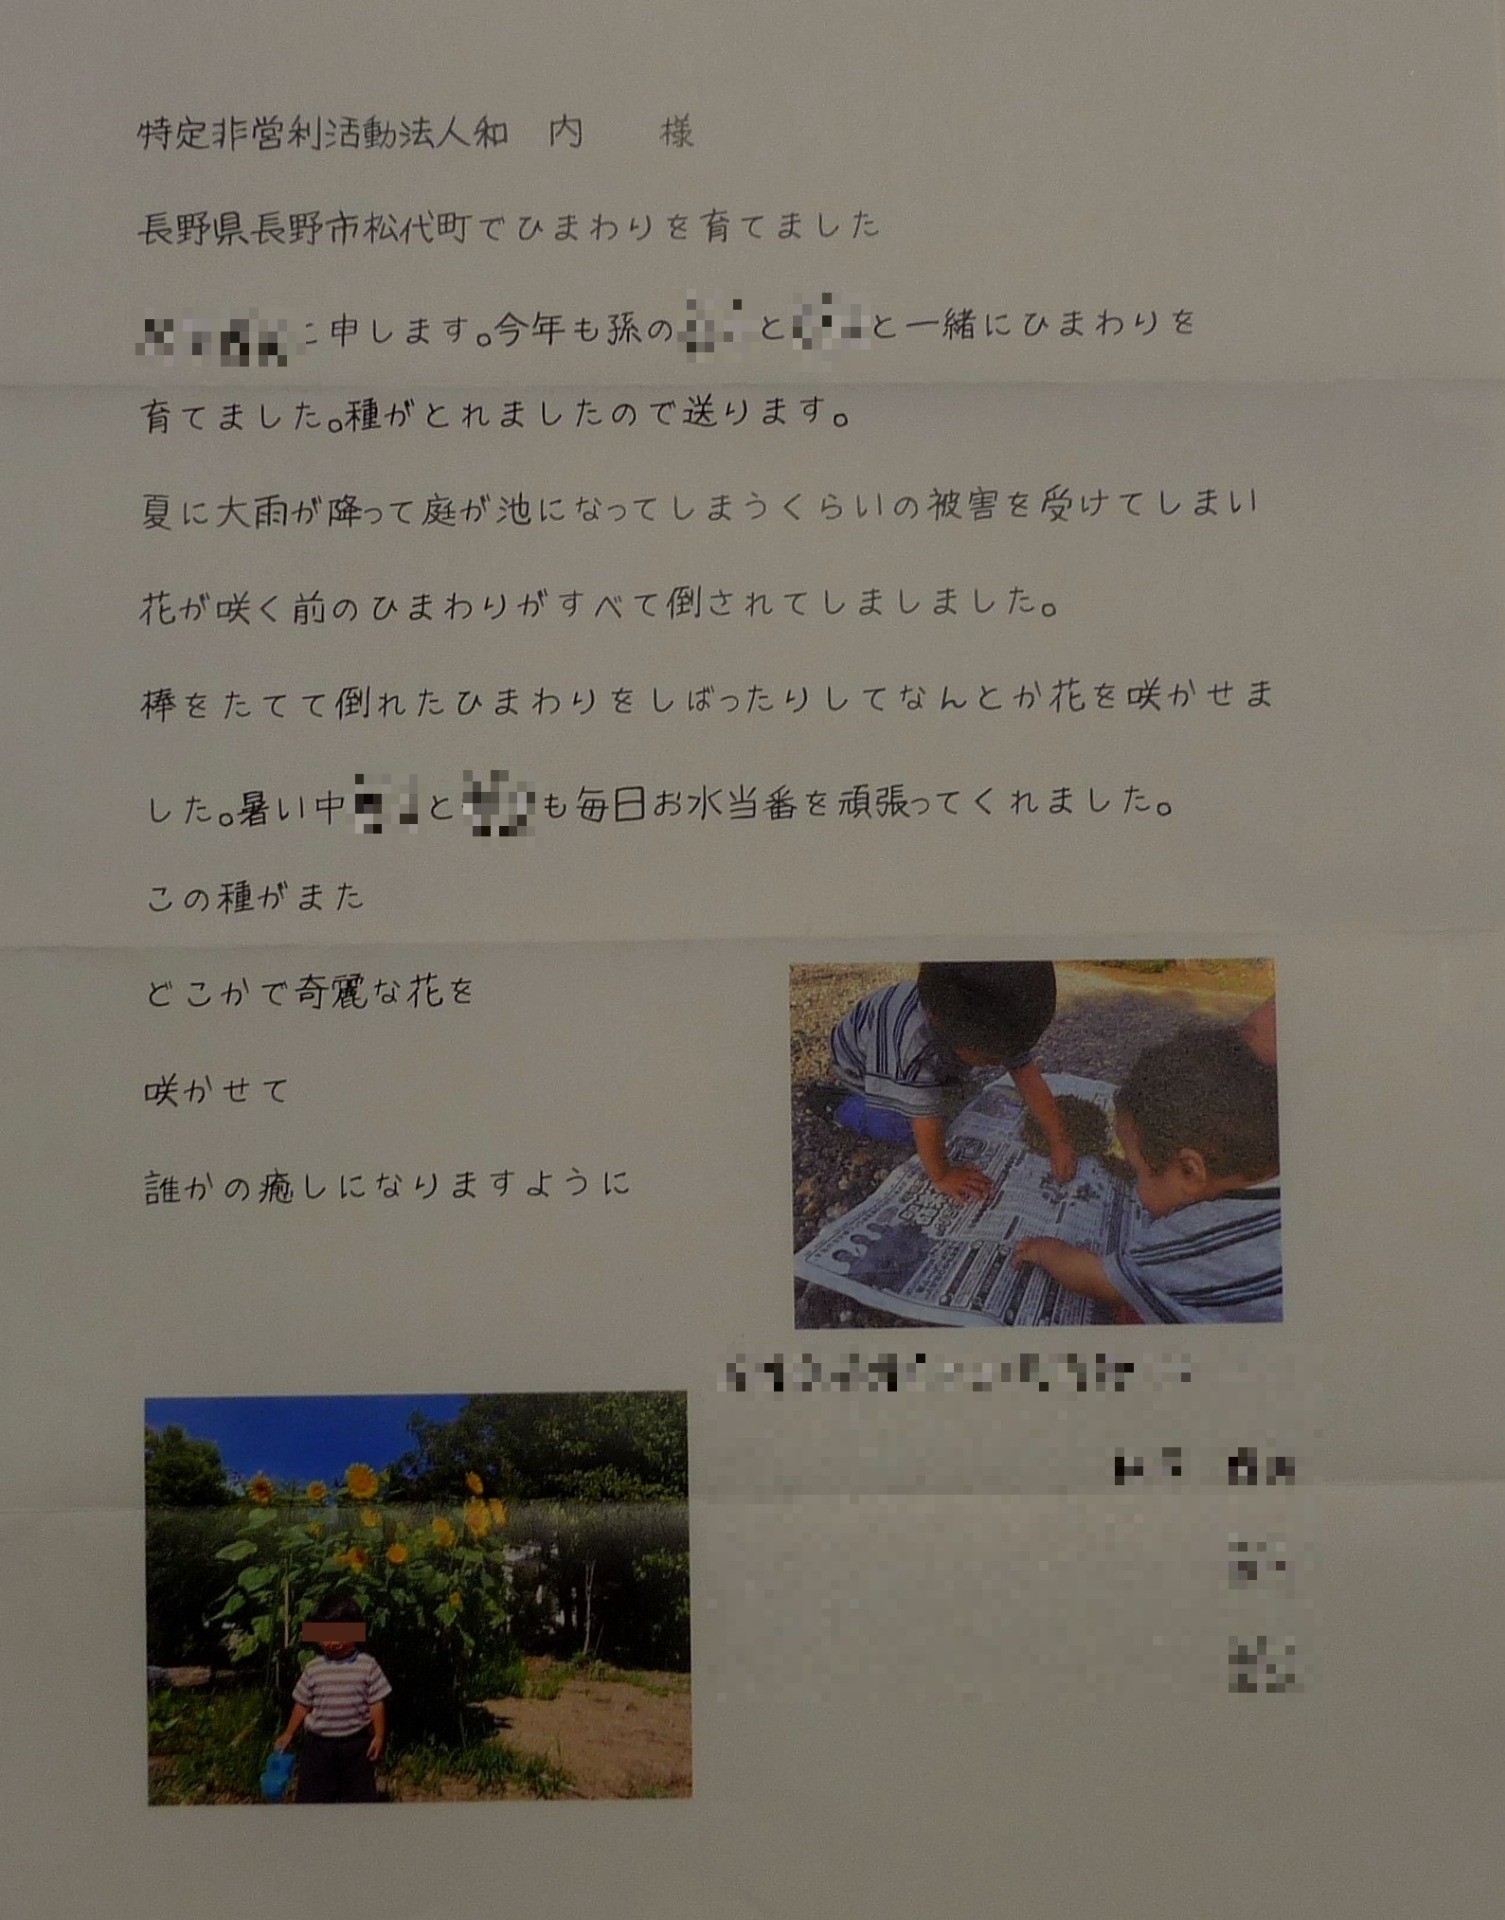 特定非営利活動法人和　内　　様
長野県長野市松代町でひまわりを育てました
と申します。今年も孫の と と一緒にひまわりを
育てました。種がとれましたので送ります。
夏に大雨が降って庭が池になってしまうくらいの被害を受けてしまい
花が咲く前のひまわりがすべて倒されてしましました。
棒をたてて倒れたひまわりをしばったりしてなんとか花を咲かせま
した。暑い中 と も毎日お水当番を頑張ってくれました。
この種がまた
どこかで奇麗な花を
咲かせて
誰かの癒しになりますように